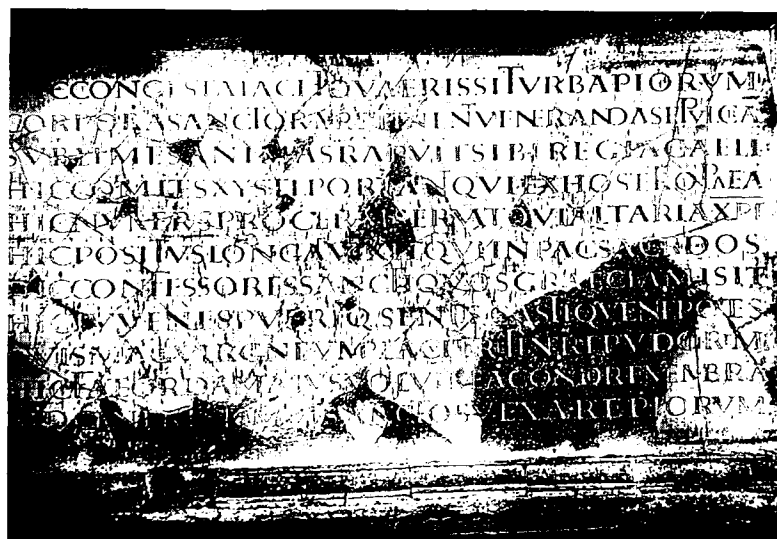 CONGESTA IACET QVAERIS SI TVRBA PIORVM
CORPORA SANCTORVM RETINENT VENERANDA SEPVLCRA
SVBLIMES ANIMAS RAPVIT SIBI REGIA CAELI
HIC COMITES XYSTI PORTANT QVI EX HOSTE TROPAEA
HIC NVMERVS PROCERVM SERVAT QVI ALTARIA XPI
HIC POSITVS LONGA VIXIT QVI IN PACE SACERDOS
HIC CONFESSORES SANCTI QVOS GRAECIA MISIT
HIC IVVENES PVERIQ SENES CASTIQVE NEPOTES
QVIS MAGE VIRGNEVM PLACVIT RETINERE PVDOREM
HIC FATEOR DAMASVS VOLVI MEA CONDERE MEMBRA
SANCTOS VEXARE PIORVM